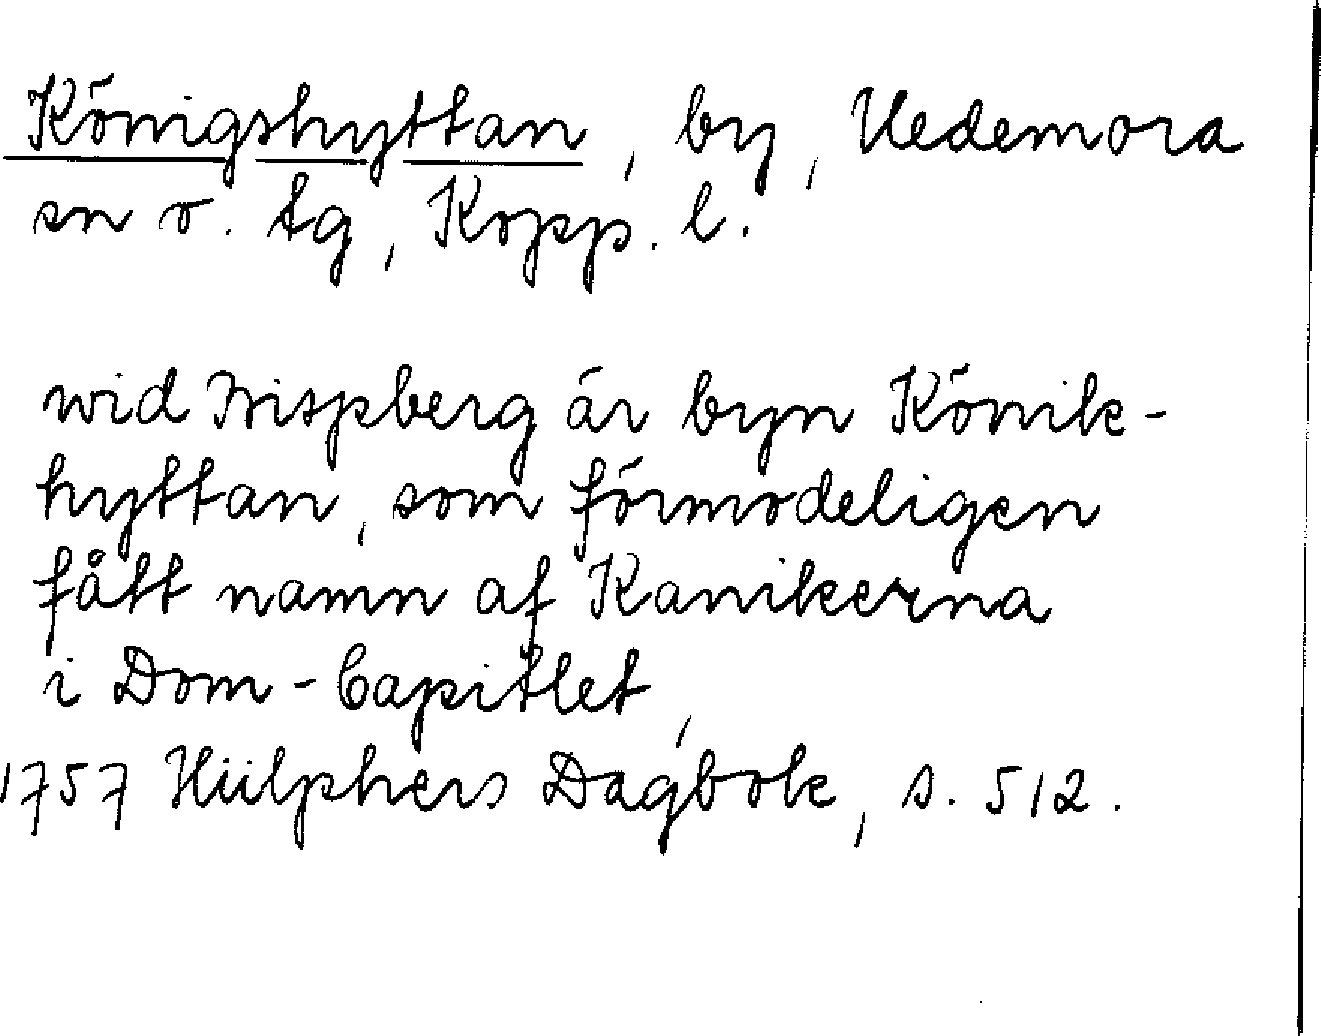 Königshyttan, by, Hedemora
sn o. tg, Kopp. l.
wid Bispberg är byn Könik-
hyttan, som förmodeligen
fått namn af Kanikerna
i Dom-Capitlet,
1757 Hülphers Dagbok, s. 512.